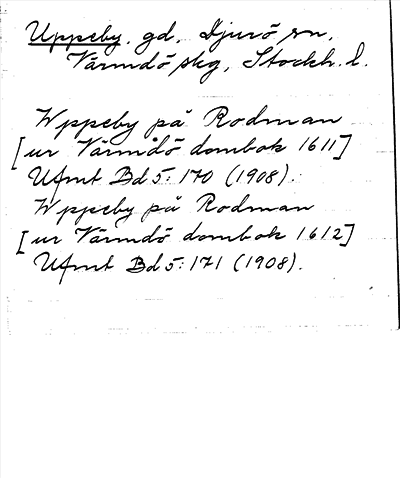 Uppeby. gd, Djurö sn,
Värmdö skg, Stockh. l.
Wppeby på Rodman
[ur Värmdö dombok 1611]
Ufmt Bd 5: 170 (1908).
Wppeby på Rodman
[ur Värmdö dombok 1612]
Ufmt Bd 5: 171 (1908).